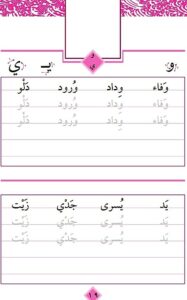 و يـ ي
و
ي
وَفاء وِداد وُرود دَلْو
وَفاء وِداد وُرود دَلْو
وَفاء وِداد وُرود دَلْو
يَد يُسرى جَدْي زَيْت
يَد يُسرى جَدْي زَيْت
يَد يُسرى جَدْي زَيْت
١٩